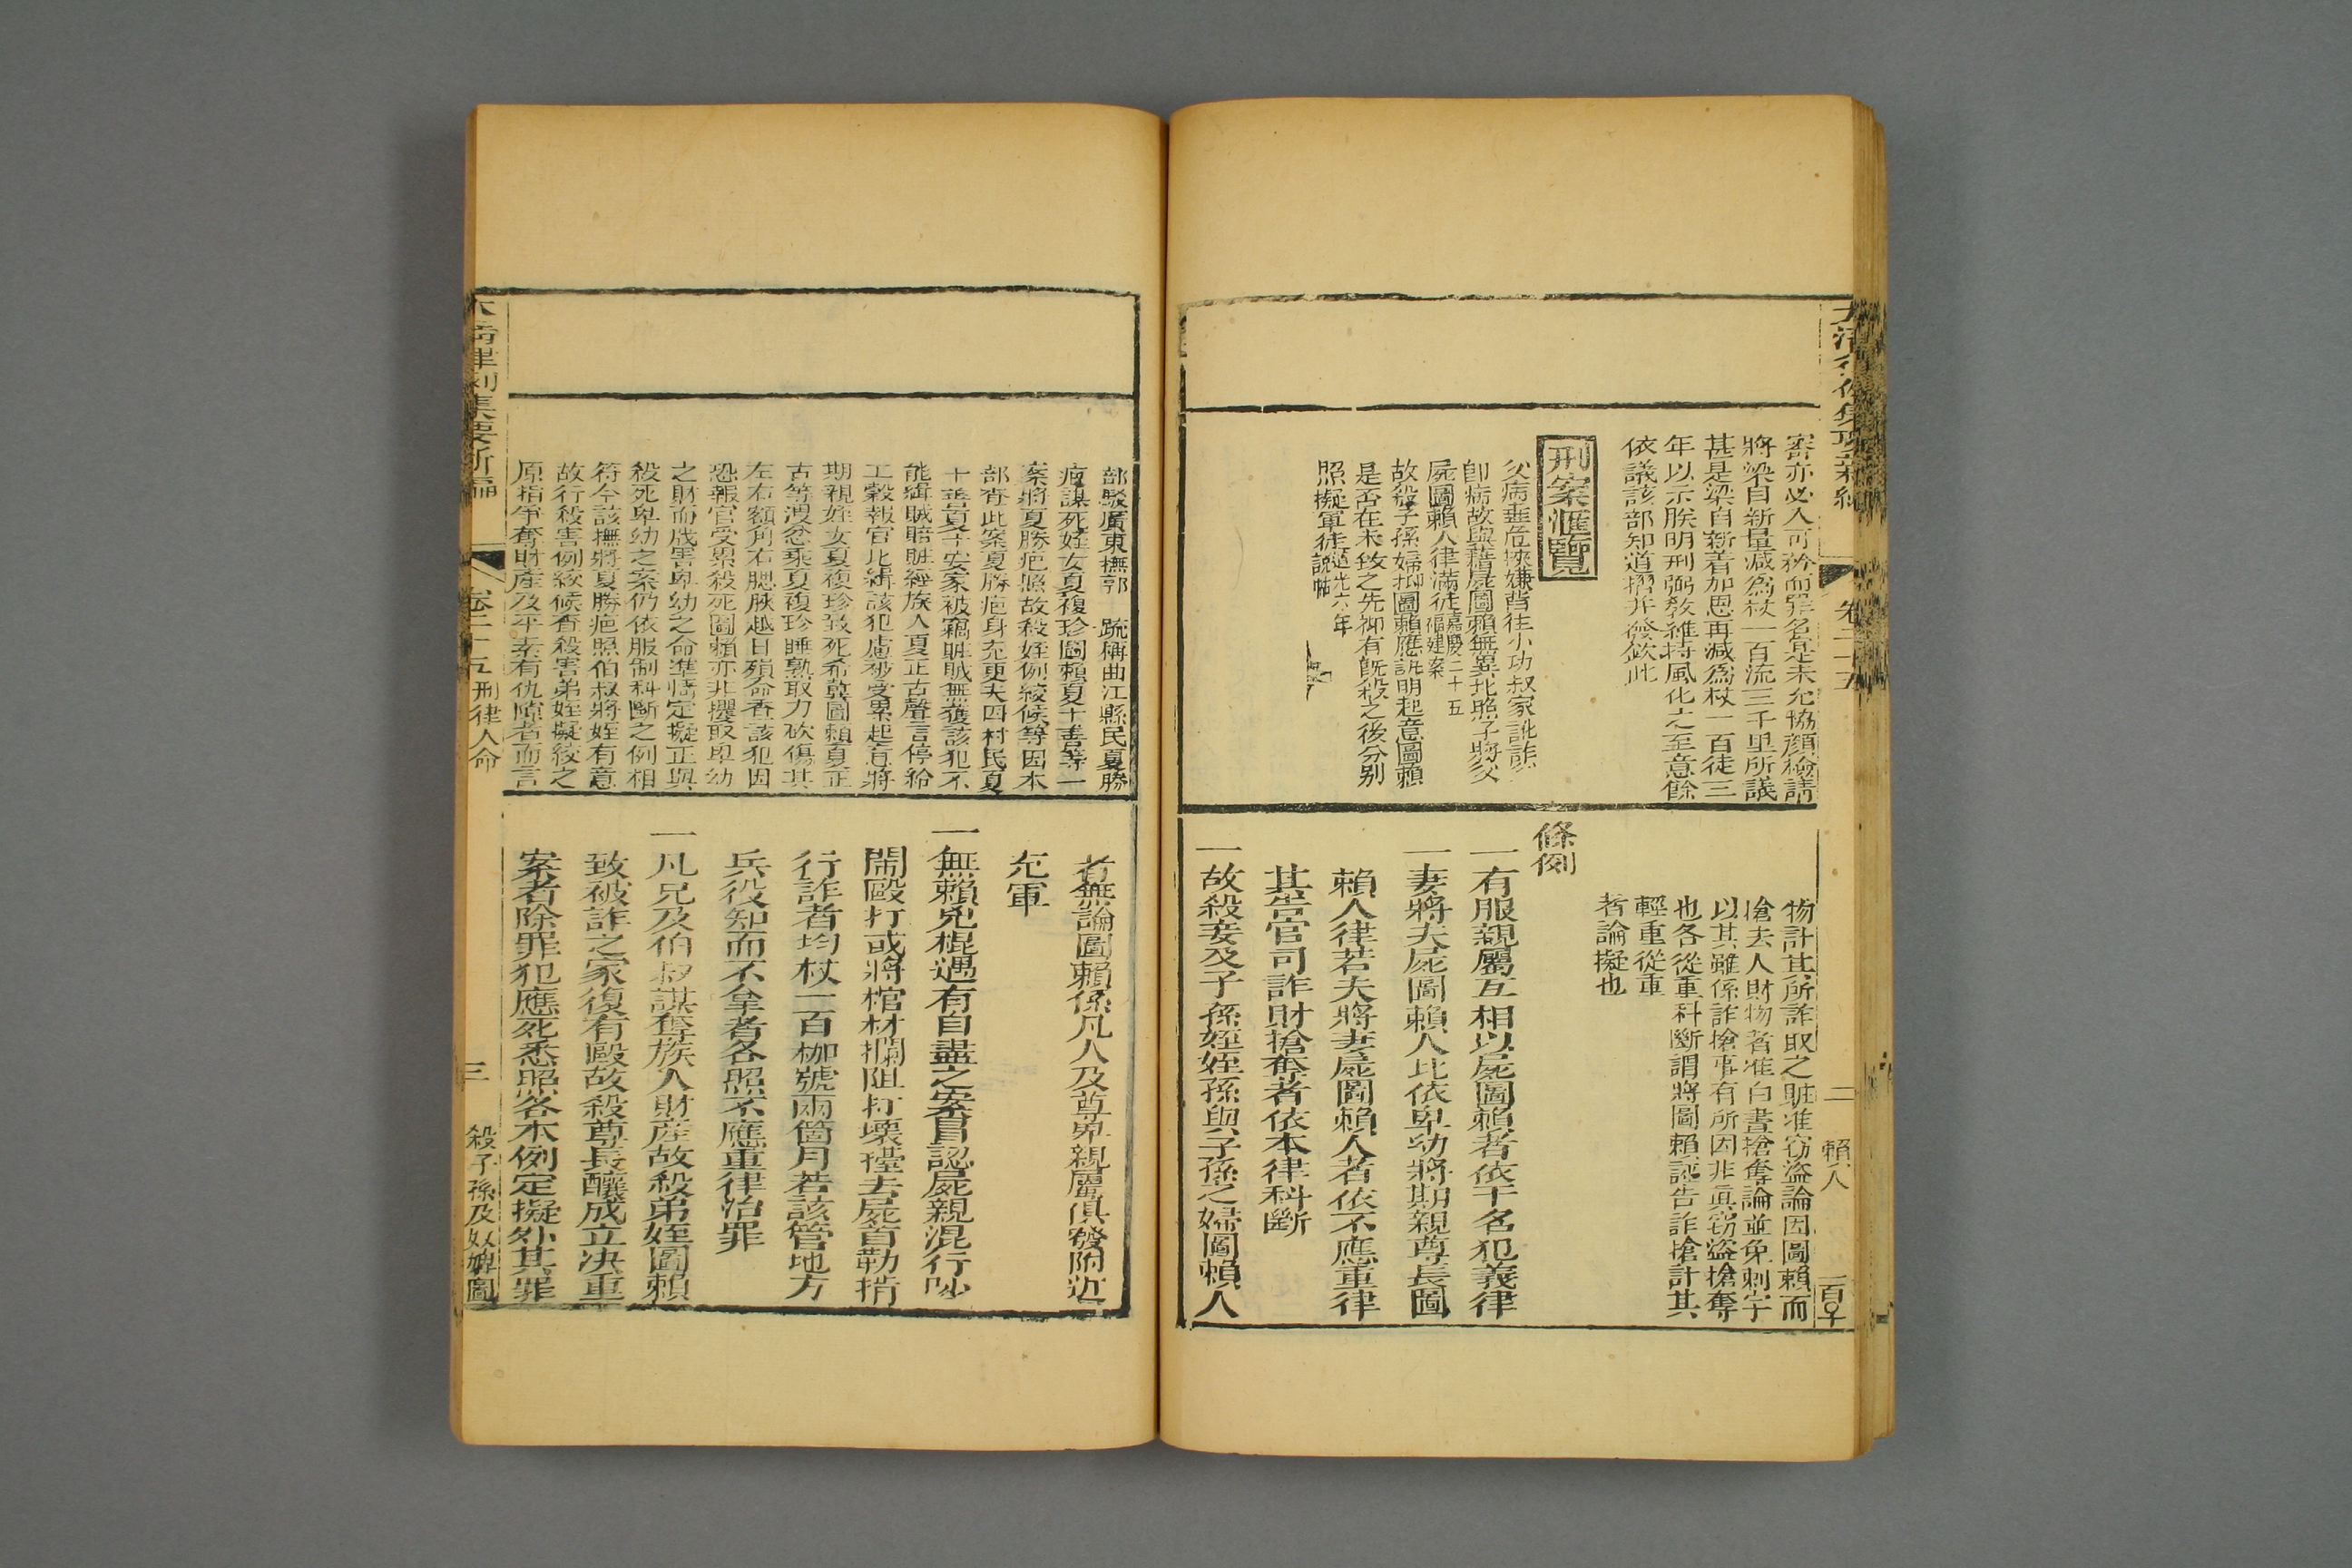 大清律例集要新編
卷二十五
二
賴人
害亦必人可矜而罪名是未允協顔檢請
將梁自新量減爲杖一百流三千里所議
甚是梁自新着加恩再減爲杖一百徒三
年以示朕明刑弼教維持風化之至意餘
依議該部知道摺并發欽此
刑案滙覽
父病垂危挾嫌背往小功叔家訛詐
卽病故與藉屍圖賴無異比照子將父
屍圖賴人律滿徒嘉慶二十五福建案
故殺子孫婦抑圖賴應訊明起意圖賴
是否在未致之先抑有旣殺之後分别
照擬軍徒道光六年說帖
物計其所詐取之贓准窃盜論因圖賴而
搶去人財物者准白晝搶奪論並免刺字
以其雖係詐搶事有所因非真窃盜搶奪
也各從重科斷謂將圖賴誣告詐搶計其
輕重從重
者論擬也
條例
一有服親屬互相以屍圖賴者依干名犯義律
一妻將夫屍圖賴人比依卑幼將期親尊長圖
賴人律若夫將妻屍圖賴人者依不應重律
其告官司詐財搶奪者依本律科斷
一故殺妾及子孫姪姪孫與子孫之婦圖賴人
部駁廣東撫郭 疏稱曲江縣民夏勝
疤謀死姪女夏複珍圖賴夏十善等一
案將夏勝疤照故殺姪例絞候等因本
部查此案夏勝疤身充更夫因村民夏
十善夏十安家被竊贓賊無獲該犯不
能緝賊賠贓經族人夏正古聲言停給
工穀報官比緝該犯慮恐受累起意將
期親姪女夏複珍致死希冀圖賴夏正
古等洩忿乘夏複珍睡熟取刀砍傷其
左右額角右腮脥越日殞命查該犯因
恐報官受累殺死圖賴亦非攫取卑幼
之財而戕害卑幼之命準情定擬正與
殺死卑幼之案仍依服制科斷之例相
符今該撫將夏勝疤照伯叔將姪有意
故行殺害例絞候查殺害弟姪擬絞之
原指爭奪財產及平素有仇隙者而言
者無論圖賴係凡人及尊卑親屬俱發附近
充軍
一無賴兇棍遇有自盡之案冒認屍親混行吵
鬧毆打或將棺材攔阻打壞擡去屍首勒掯
行詐者均杖一百枷號兩箇月若該管地方
兵役知而不拿者各照不應重律治罪
一凡兄及伯叔謀奪族人財產故殺弟姪圖賴
致被詐之家復有毆故殺尊長釀成立决重
案者除罪犯應死悉照各本例定擬外其罪
大清律例集要新編
卷二十五
刑律人命
三
殺子孫及奴婢圖